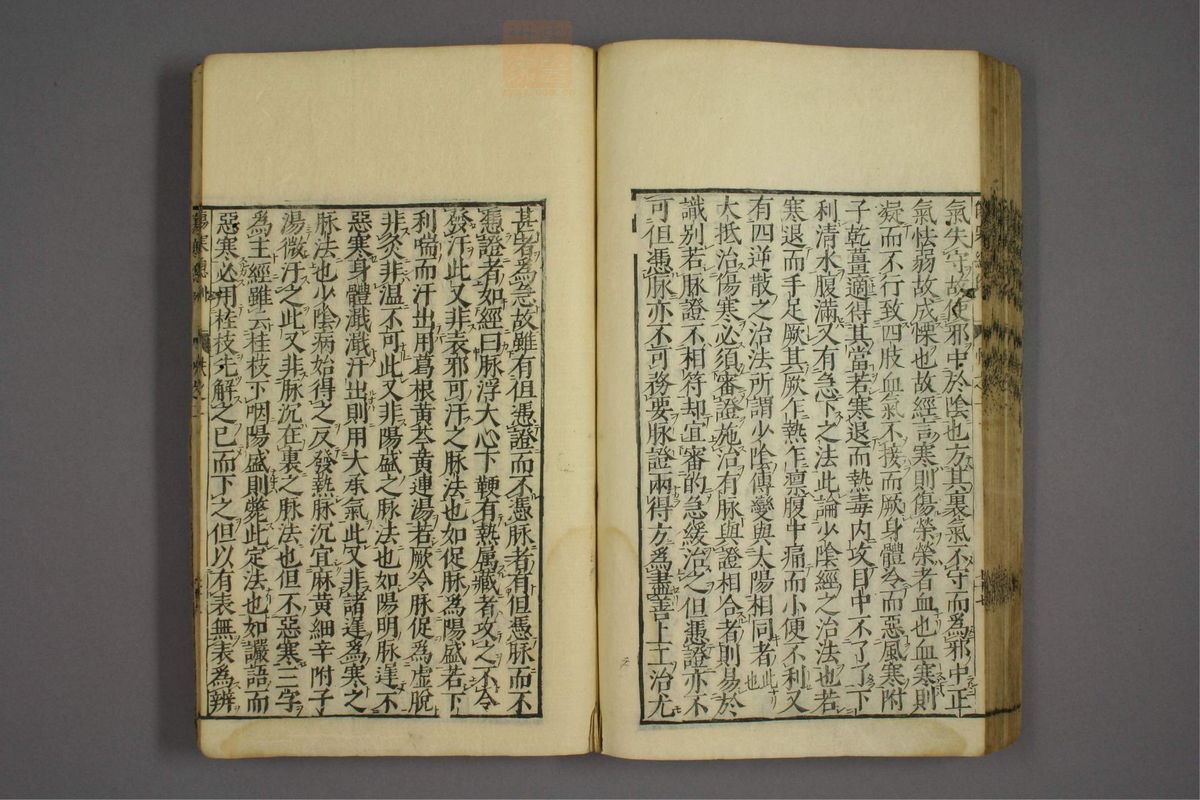 氣失守故使邪中於陰也方其裏氣不守而為邪中正
氣怯弱故成慄也故經言寒則傷榮榮者血也血寒則
凝而不行致四肢血氣不接而厥身體冷而惡風寒附
子乾薑適得其當若寒退而熱毒內攻目中不了了下
利清水腹滿又有急下之法此論少陰經之治法也若
寒退而手足厥其厥乍熱乍凛腹中痛而小便不利又
有四逆散之治法所謂少陰傳變與太陽相同者此也
大抵治傷寒必須審證施治有脉與證相合者則易於
識別若脉證不相符却宜審的急緩治之但憑證亦不
可但憑脉亦不可務要脉證兩得方為盡善上工治尤
甚者為急故雖有但憑證而不憑脉者有但憑脉而不
憑證者如經曰脉浮大心下鞕有熱属藏者攻之不令
發汗此又非表邪可汗之脉法也如促脉為陽盛若下
利喘而汗出用葛根黄芩黄連湯若厥冷脉促為虛脫
非灸非温不可此又非陽盛之脉法也如陽明脉遲不
惡寒身體濈濈汗出則用大承氣此又非諸遲為寒之
脉法也少陰病始得之反發熱脉沉宜麻黄細辛附子
湯微汗之此又非脉沉在裏之脉法也但不惡寒三字
為主經雖云桂枝下咽陽盛則斃此定法也如讝語而
惡寒必用桂枝先解之已而下之但以有表無表為辨